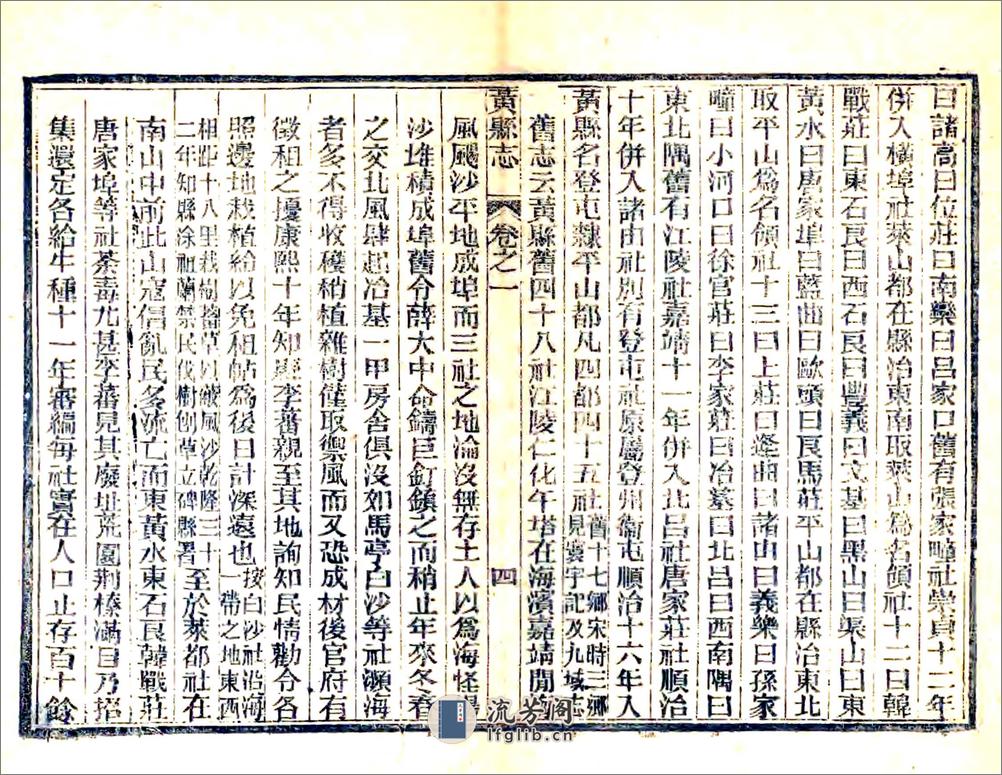 曰諸高曰位莊曰南欒曰呂家口舊有張家疃社崇貞十二年
併入橫埠社萊山都在縣治東南取萊山爲名領社十二曰韓
戰莊曰東石良曰西石良曰豐義曰文基曰黑山曰渠山曰東
黃水曰唐家埠曰藍曲曰歐頭曰良馬莊平山都在縣治東北
取平山爲名領社十三曰上莊曰邌曲曰諸山曰義樂曰孫家
疃曰小河口曰徐官莊曰李家莊曰冶基曰北呂曰西南隅曰
東北隅舊有江陵社嘉靖十一年併入北呂社唐家莊社順治
十年併入諸由社別有登屯社原屬登州衞屯順治十六年入
黃縣名登屯隸平山都凡四都四十五社舊十七鄉宋時三鄉見寰宇記及九域志
舊志云黃縣舊四十八社江陵仁化午塔在海濱嘉靖閒海
黃縣志 卷之一 四
風颺沙平地成埠而三社之地淪沒無存土人以爲海怪揚
沙堆積成埠舊令薛大中命鑄巨釘鎮之而稍止年來冬春
之交北風肆起冶基一甲房舍俱沒如馬亭白沙等社瀕海
者多不得收穫稍植雜樹僅取禦風而又恐成材後官府有
徵租之擾康熙十年知縣李蕃親至其地詢知民情勸令各
照邊地栽植給以免租帖爲後日計深遠也按白沙社沿海一帶之地東西
相距十八里栽樹蓄草以蔽風沙乾隆三十二年知縣涂祖蘭禁民伐樹刨草立碑縣署至於萊都社在
南山中前此山寇倡亂民多流亡而東黃水東石良韓戰莊
唐家埠等社荼毒尤甚李蕃見其廢址荒園荆榛滿目乃招
集遺丁各給牛種十一年審編每社實在人口止存百十餘
流芳阁
lfglib.cn